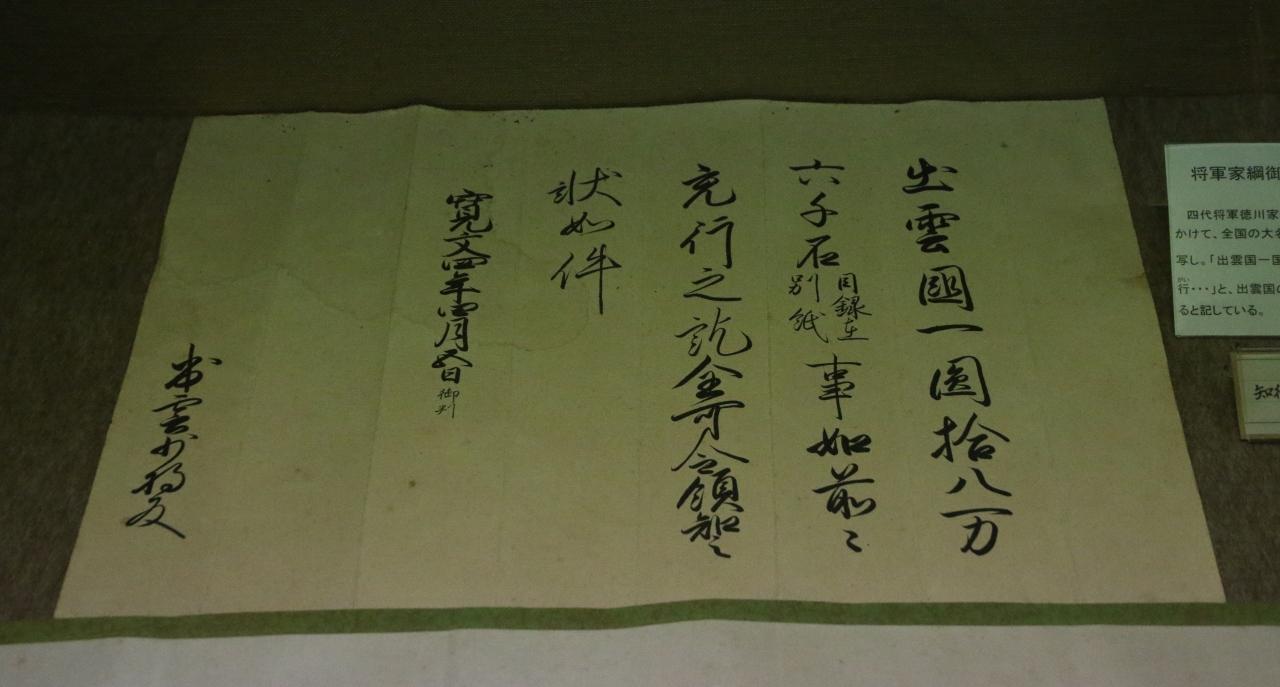 出雲國一圓拾八万
六千石目録在別紙事如前々
充行之訖全可令領知之
状如件
寛文四年四月五日御判
出雲少将殿
将軍家綱御
四代将軍徳川家
かけて、全国の大名
写し。「出雲国一国
行・・・」と、出雲国の
ると記している。